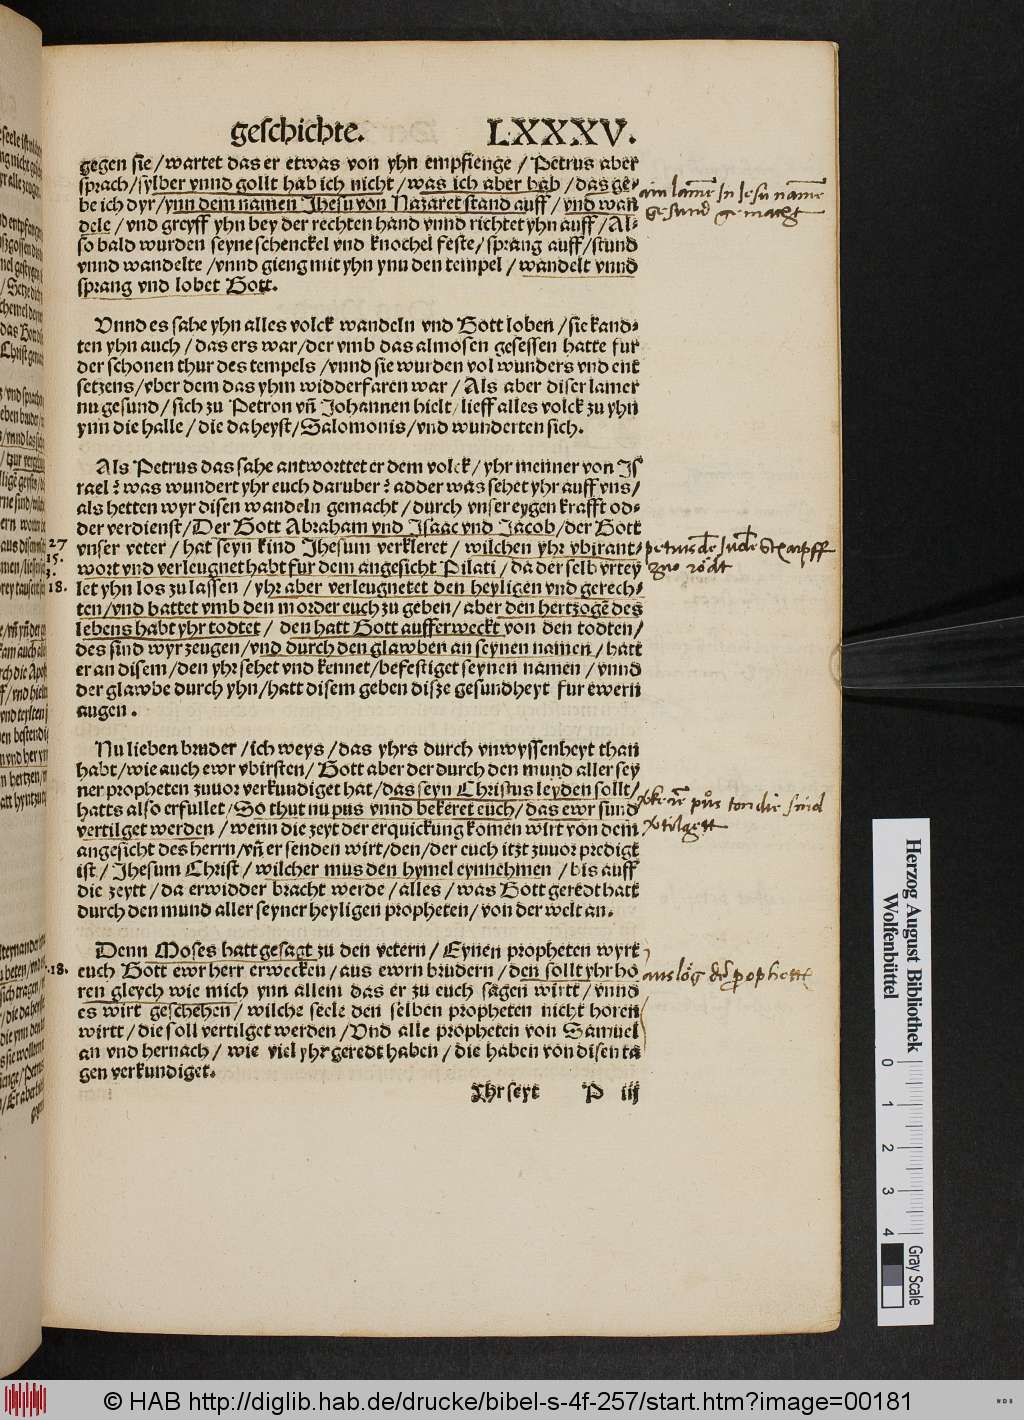 geschichte. LXXXV.
gegen sie / wartet das er etwas von yhn empfienge / Petrus aber
sprach / sylber vnnd gollt hab ich nicht / was ich aber hab / das ge⸗
be ich dyr / ynn dem namen Jhesu von Nazaret stand auff / vnd wan
dele / vnd greyff yhn bey der rechten hand vnnd richtet yhn auff / Al⸗
so bald wurden seyne schenckel vnd knochel feste / sprang auff / stund
vnnd wandelte / vnnd gieng mit yhn ynn den tempel / wandelt vnnd
sprang vnd lobet Gott.
Vnnd es sahe yhn alles volck wandeln vnd Gott loben / sie kand⸗
ten yhn auch / das ers war / der vmb das almosen gesessen hatte fur
der schonen thur des tempels / vnnd sie wurden vol wunders vnd ent
setzens / vber dem das yhm widderfaren war / Als aber diser lamer
nu gesund / sich zu Petron vñ Johannen hielt / lieff alles volck zu yhn
ynn die halle / die da heyst / Salomonis / vnd wunderten sich.
Als Petrus das sahe antworttet er dem volck / yhr menner von Is
rael? was wundert yhr euch daruber? adder was sehet yhr auff vns /
als hetten wyr disen wandeln gemacht / durch vnser eygen krafft od⸗
der verdienst / Der Gott Abraham vnd Isaac vnd Jacob / der Gott
vnser veter / hat seyn kind Jhesum verkleret / wilchen yhr vbirant⸗
wort vnd verleugnet habt fur dem angesicht Pilati / da der selb vrtey
let yhn los zu lassen / yhr aber verleugnetet den heyligen vnd gerech⸗
ten / vnd battet vmb den morder euch zu geben / aber den hertzogē des
lebens habt yhr todtet / den hatt Gott aufferweckt von den todten /
des sind wyr zeugen / vnd durch den glawben an seynen namen / hatt
er an disem / den yhr sehet vnd kennet / befestiget seynen namen / vnnd
der glawbe durch yhn / hatt disem geben disze gesundheyt fur ewern
augen.
Nu lieben bruder / ich weys / das yhrs durch vnwyssenheyt than
habt / wie auch ewr vbirsten / Gott aber der durch den mund aller sey
ner propheten zuuor verkundiget hat / das seyn Christus leyden sollt /
hatts also erfullet / So thut nu pus vnnd bekeret euch / das ewr sund
vertilget werden / wenn die zeyt der erquickung komen wirt von dem
angesicht des herrn / vñ er senden wirt / den / der euch itzt zuuor predigt
ist / Jhesum Christ / wilcher mus den hymel eynnehmen / bis auff
die zeytt / da erwidder bracht werde / alles / was Gott geredt hatt
durch den mund aller seyner heyligen propheten / von der welt an.
Denn Moses hatt gesagt zu den vetern / Eynen propheten wyrt
euch Gott ewr herr erwecken / aus ewrn brudern / den sollt yhr ho
ren gleych wie mich ynn allem das er zu euch sagen wirtt / vnnd
es wirt geschehen / wilche seele den selben propheten nicht horen
wirtt / die soll vertilget werden / Vnd alle propheten von Samuel
an vnd hernach / wie viel yhr geredt haben / die haben von disen ta
gen verkundiget.
Ihr seyt P iij
27
15.
3.
18.
18.
ain lame Jn Jesu name
gesund gemacht
Herzog August Bibliothek
Wolfenbüttel
0 1 2 3 4
Gray Scale
© HAB http://diglib.hab.de/drucke/bibel-s-4f-257/start.htm?image=00181